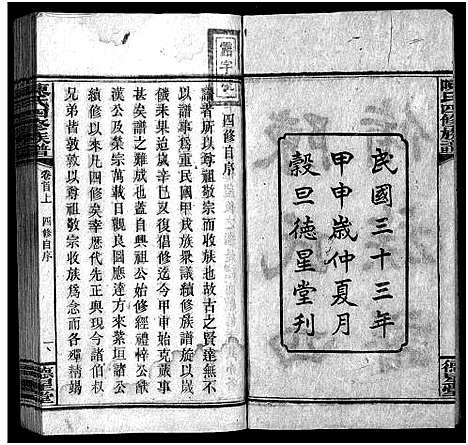 民國三十三年
甲申歲仲夏月
穀旦德星堂刊
陳氏四修族譜
德星堂
四修自序
譜者所以尊祖敬宗而收族也故古之賢達無不
以族譜為重民國甲戌族衆議續修族譜旋以歲
儉未果迨歲辛巳又復倡修迄今甲申始克蕆事
甚矣譜之難成也蓋自興祖公始修經禮悖公猷
漢公及榮宗萬載日觀良圖應達方來紫垣諸公
續修以來凡四修矣幸歷代先正及現今諸伯叔
兄弟皆能敦孝悌以尊祖敬宗收族為念而各殫精竭
陳氏四修族譜
卷首上
四修自序
一
德星堂